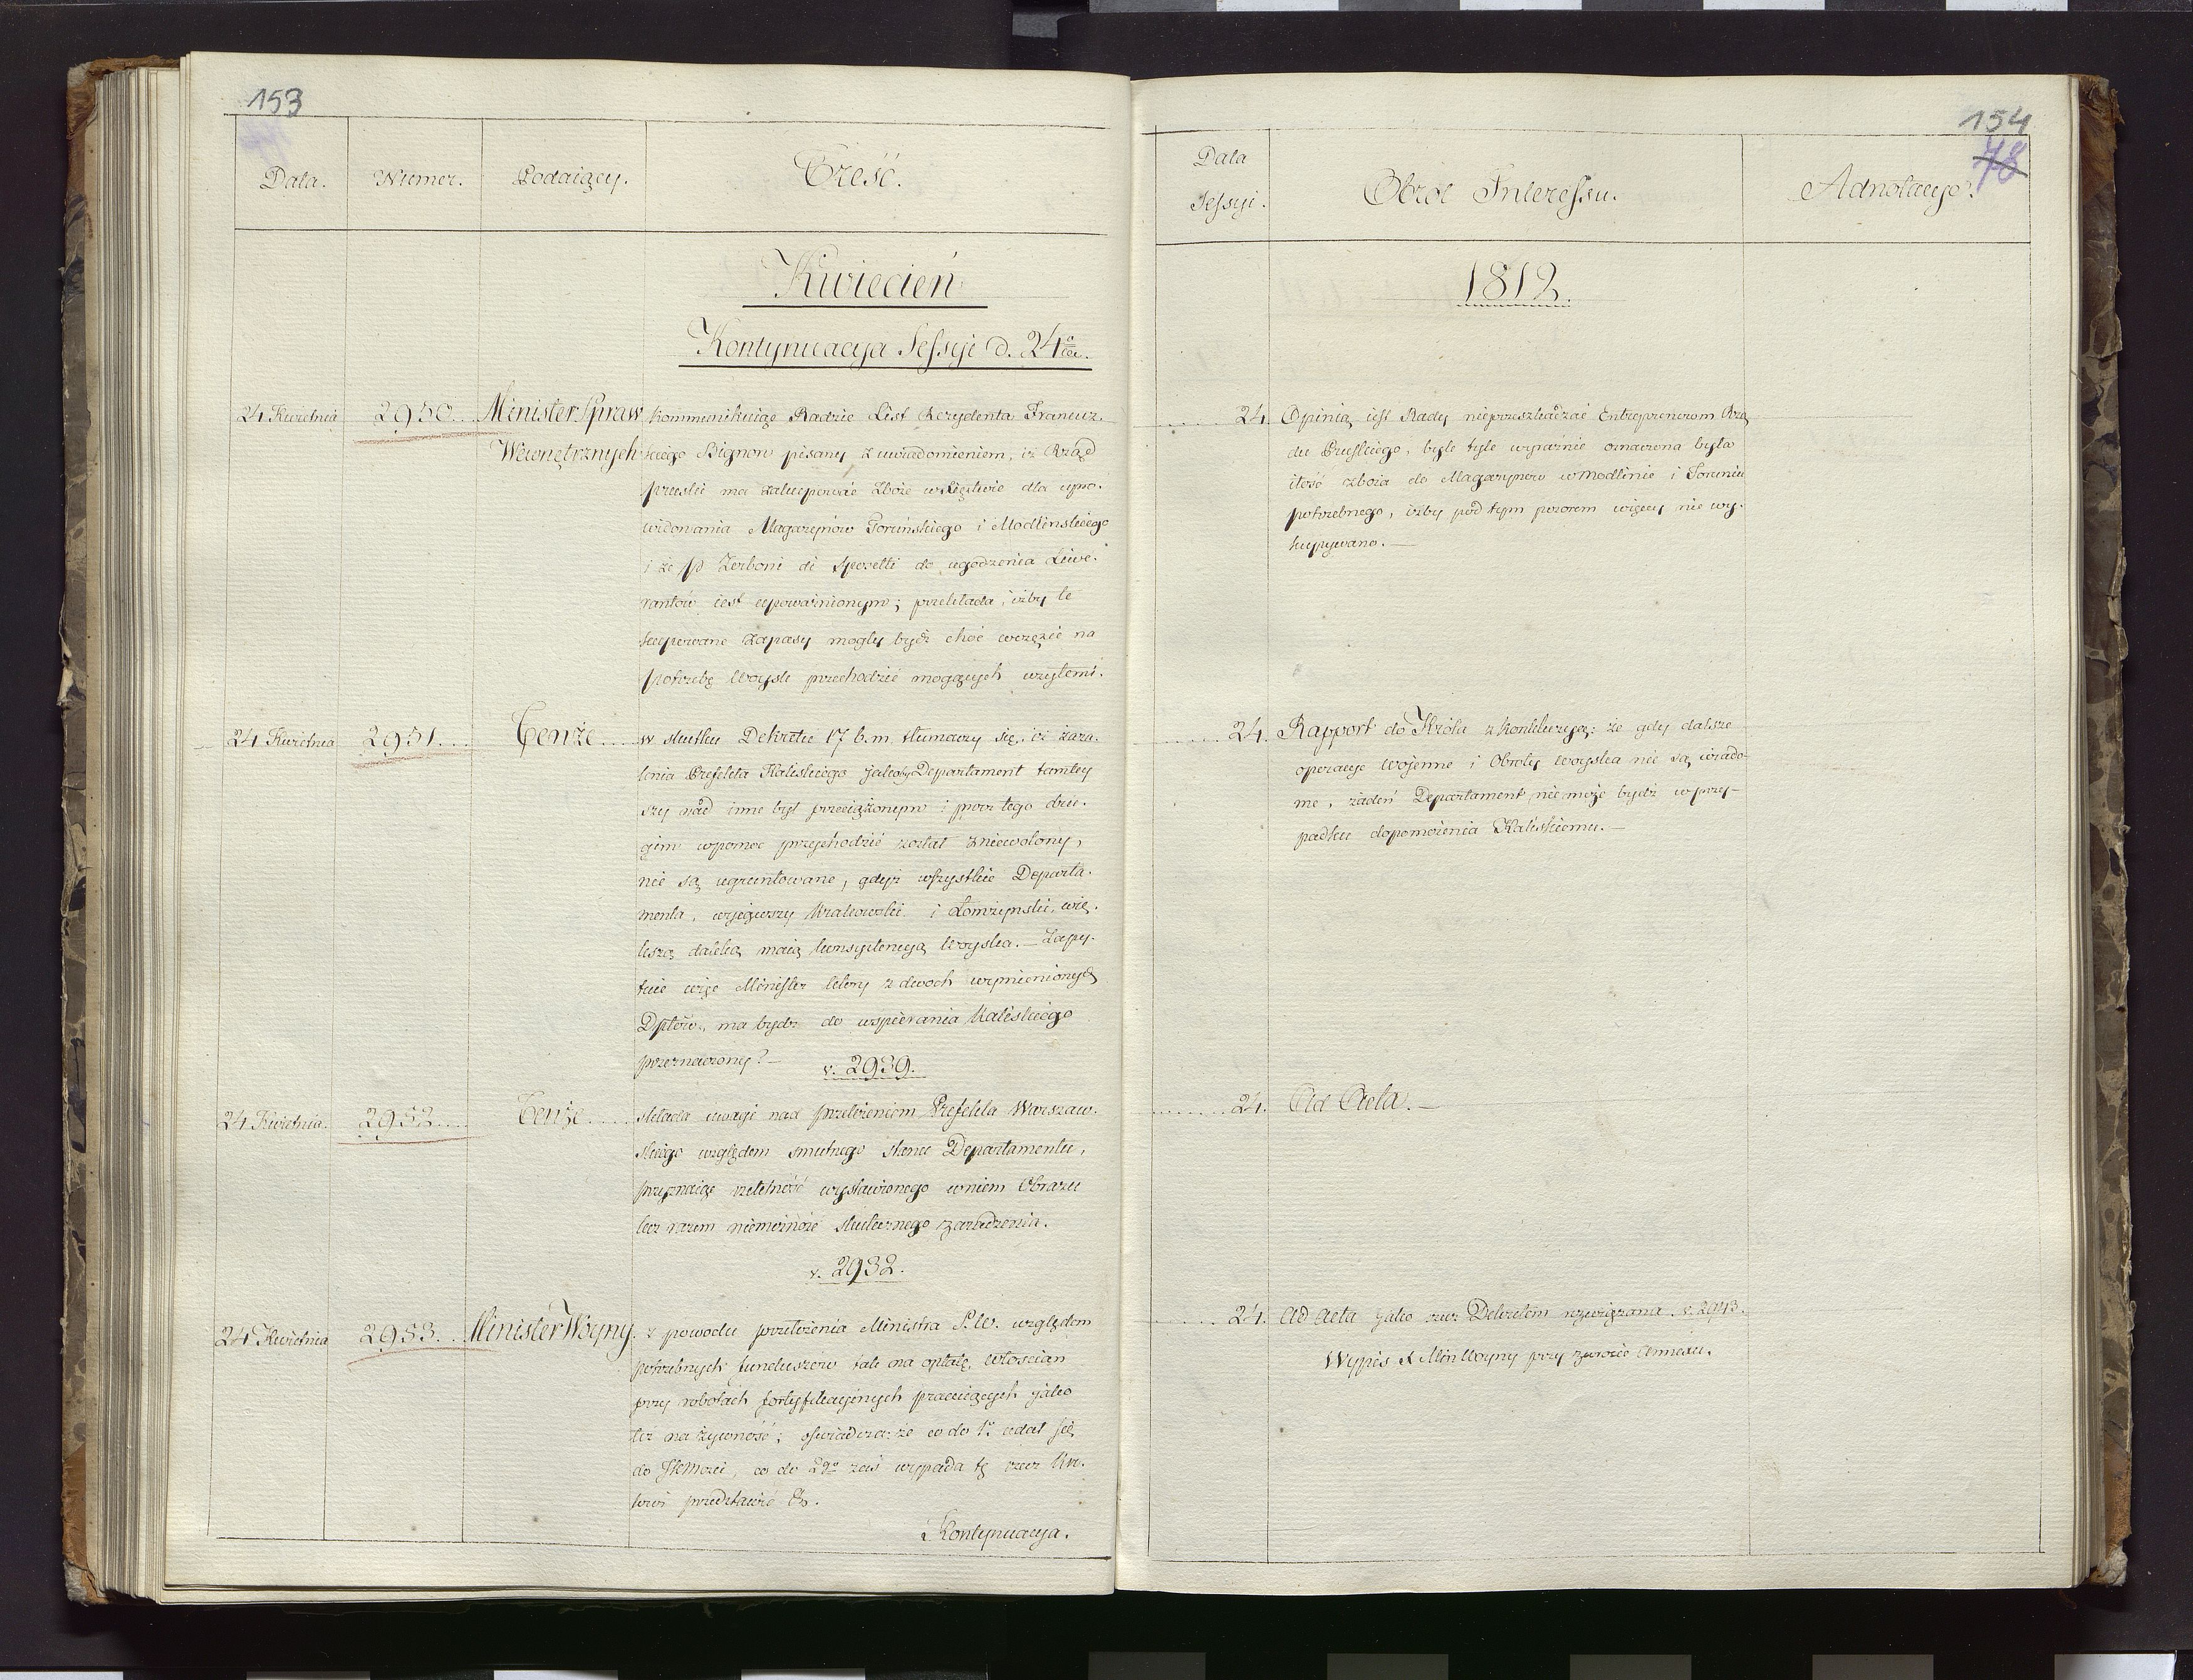 153
Data.
Numer.
Podaiący.
Treść.
Kwiecień
Kontynuacya Sessyi d. 24go
24 Kwietnia
2950...
Minister Spraw
Wewnętrznych
kommunikuiąc Radzie List Rezydenta Francuz.
kiego Bignon pisany z uwiadomieniem, iż Rząd
pruski ma zakupować Zboże w Xięztwie dla apro.
widowania Magazynów Toruńskiego i Modlinskiego
i że P Zerboni di Sposetti do ugodzenia Liwe.
rantów iest upoważnionym; przekłada, iżby te
skupowane zapasy mogły bydź choć w części na
potrzebę Woysk przechodzić mogących użytemi.
24 Kwietnia
2951....
Tenże....
w skutku Dekretu 17 b.m tłumaczy się, iż zaża.
lenia Prefekta Kaliskiego jakoby Departament tamtey
szy nad inne był przeciążonym i przez tego dru.
gim w pomoc przychodzić został zniewolony,
nie są ugruntowane, gdyż wszystkie Departa.
menta, wyiąwszy Krakowski i Łomżynski, wię.
kszą daleką maią konsystencyą Woyska. — Zapy.
tuie więc Minister który z dwoch wymienionych
Dptów, ma bydź do wspierania Kaliskiego
przeznaczony? —
v. 2939.
24 Kwietnia.
2952....
Tenże.....
składa uwagi nad przełożeniem Prefekta Warszaw.
skiego względem smutnego stanu Departamentu,
przyznaiąc rzetelność wystawionego w niem Obrazu
lecz razem niemożność skutecznego zaradzenia.
v. 2932.
24 Kwietnia
2953...
Minister Woyny.
z powodu przełożenia Ministra S.W. względem
potrzebnych funduszów tak na opłatę, włoscian
przy robotach fortyfikacyinych pracuiących jako
też na żywność; oświadcza: że co do 1o udał się
do JKMości, co do 2go zaś wypada tę rzecz Kró.
lowi przedstawić &.
Kontynuacya.
154
78
Data
Sessyi.
Obrót Interessu.
Adnotacye.
1812.
24.
Opinią iest Rady nieprzeszkadzać Entreprenerom Rzą
du Pruskiego, byle tyle wyraźnie oznaczona była
ilość zboża do Magazynów w Modlinie i Toruniu
potrzebnego, iżby pod tym pozorem więcey nie wy.
kupywano. —
24.
Rapport do Króla z konkluzyą: że gdy dalsze
operacye Wojenne i Obroty Woyska nie są wiado-
me, żaden Departament nie może bydź w przy-
padku dopomożenia Kaliskiemu. —
24.
Ad Acta. —
24.
Ad Acta jako rzecz Dekretem rozwiązana. v. 2943.
Wypis d Min Woyny przy zwrocie Annexu.